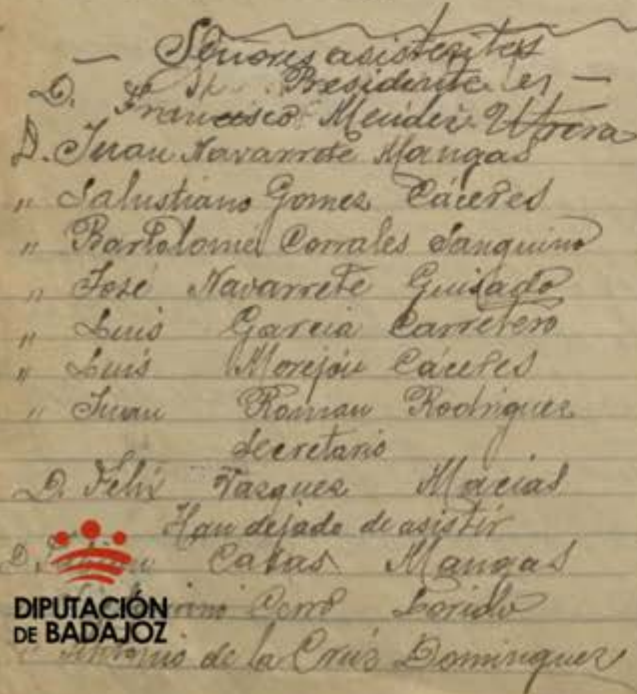 — Señores asistentes
Sr. Presidente er —
D. Francisco Mendez Utrera
D. Juan Navarrete Mangas
" Salustiano Gomez Cáceres
" Bartolomé Corrales Sanguino
" José Navarrete Guisado
" Luis Garcia Carretero
" Luis Morejón Cáceres
" Juan Roman Rodriguez
Secretario
D. Felix Vazquez Macias
Han dejado de asistir
D. Casas Mangas
Corro Lorido
Antonio de la Cruz Dominguez
DIPUTACIÓN
DE BADAJOZ